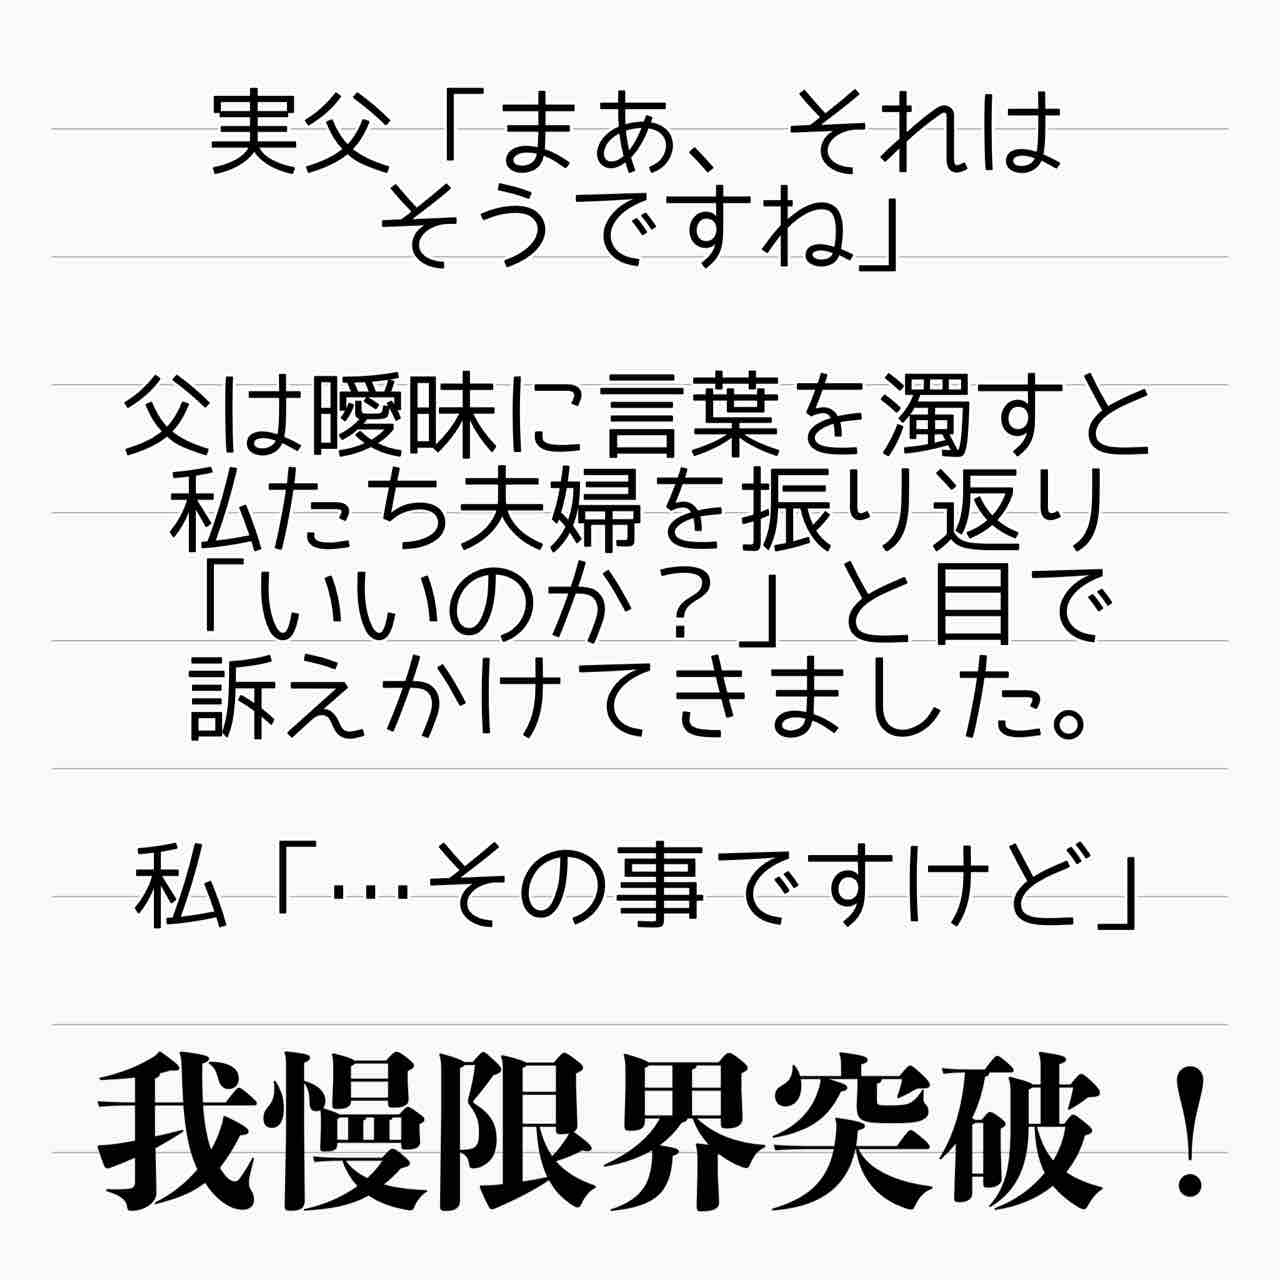 実父「まあ、それは
そうですね」
父は曖昧に言葉を濁すと
私たち夫婦を振り返り
「いいのか？」と目で
訴えかけてきました。
私「…その事ですけど」
我慢限界突破！